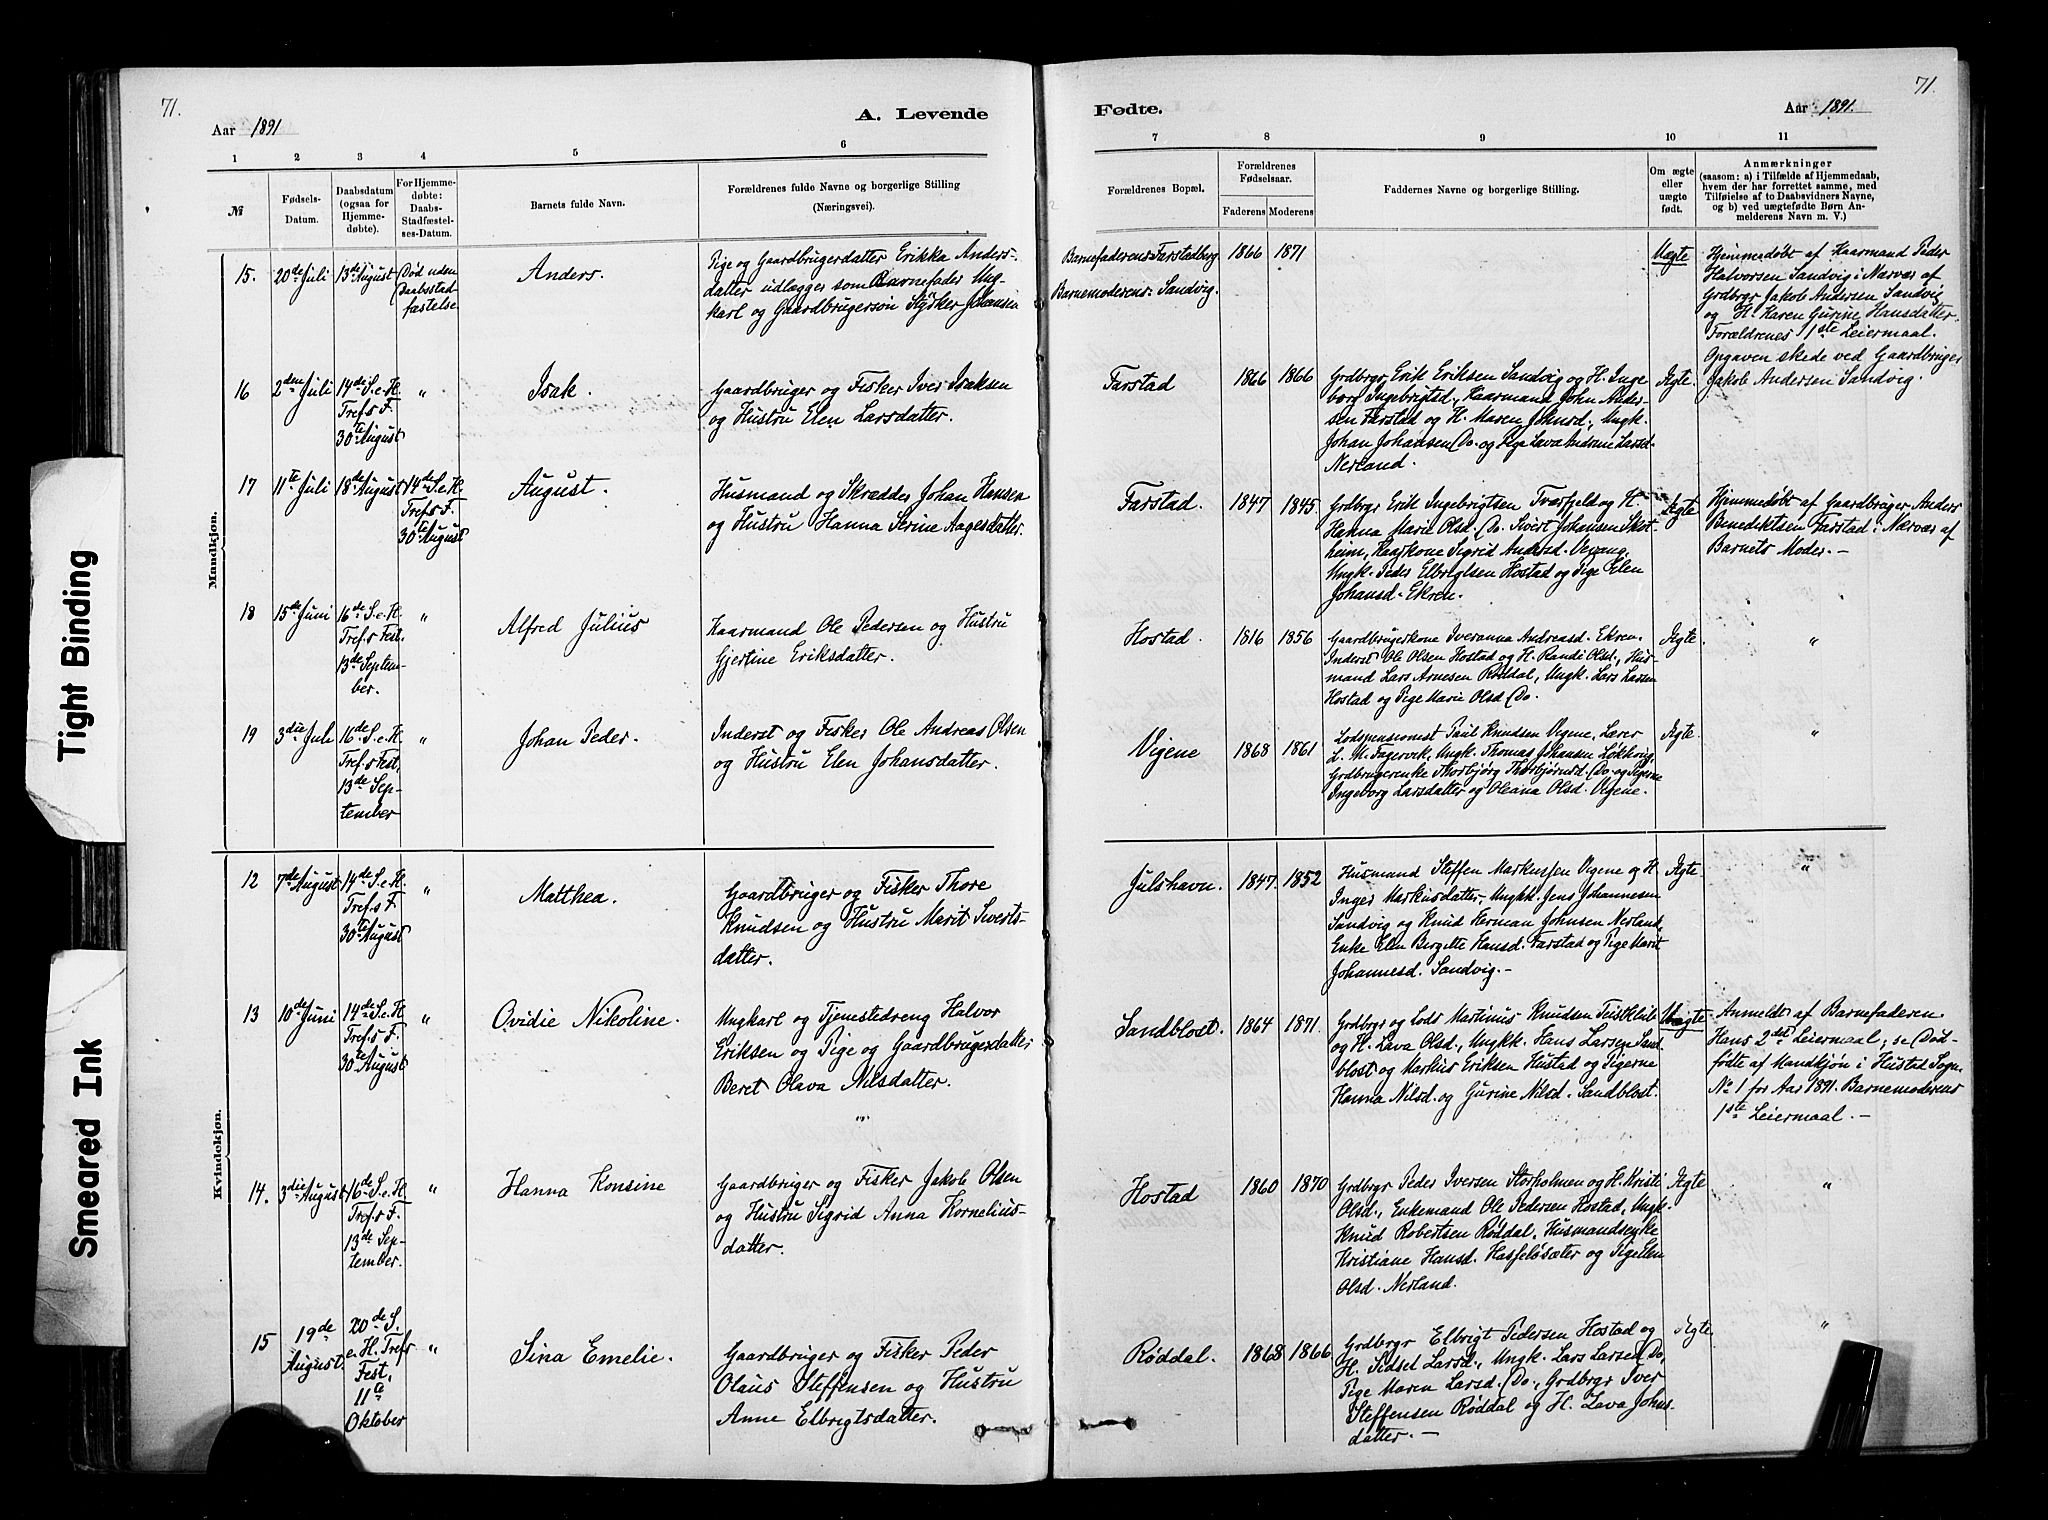 71.
Aar 1891
A. Levende
1 2 3 4 5 6
№
Fødsels-
Datum.
Daabsdatum
(ogsaa for
Hjemme-
døbte).
For Hjemme-
døbte:
Daabs-
Stadfæstel-
ses-Datum.
Barnets fulde Navn.
Forældrenes fulde Navne og borgerlige Stilling
(Næringsvei).
Mandkjøn.
15. 20de Juli 13de August Død uden
Daabsstad
fæstelse
Anders.
Pige og Gaardbrugerdatter Erikka Anders-
datter udlægger som Barnefader Ung-
karl og Gaardbrugersøn Styrker Johansen
16 2den Juli 14de S.e.H.
Tref.s F.
30te August
"
Isak.
Gaardbruger og Fisker Iver Isaksen
og Hustru Elen Larsdatter.
17 11te Juli 18de August 14de S.e.H.
Tref.s F.
30te August
August.
Husmand og Skrædder Johan Hansen
og Hustru Hanna Serine Aagesdatter.
18 15de Juni 16de S.e.H.
Tref.s Fest.
13de Septem-
ber.
"
Alfred Julius
Kaarmand Ole Pedersen og Hustru
Gjertine Eriksdatter.
19 3die Juli 16de S.e.H.
Tref.s Fest,
13de Sep-
tember
"
Johan Peder.
Inderst og Fisker Ole Andreas Olsen
og Hustru Elen Johansdatter.
Kvindekjøn.
12 7de August 14de S.e.H.
Tref.s F.
30te August
"
Matthea.
Gaardbruger og Fisker Thore
Knudsen og Hustru Marit Siverts-
datter.
13 10de Juni 14de S.e.H.
Tref.s F.
30te August
"
Ovidie Nikoline.
Ungkarl og Tjenestedreng Halvor
Eriksen og Pige og Gaardbrugerdatter
Beret Olava Nilsdatter.
"
14. 3die August 16de S.e.H.
Tref.s F.
13de Sep-
tember.
"
Hanna Konsine
Gaardbruger og Fisker Jakob Olsen
og Hustru Sigrid Anna Kornelius-
datter.
15 19de
August.
20de S.
e. H. Tref.s
Fest,
11te
Oktober
"
Sina Emelie.
Gaardbruger og Fisker Peder
Olaus Steffensen og Hustru
Anne Elbrigtsdatter.
71.
Fødte.
Aar 1891.
7 8 9 10 11
Forældrenes Bopæl.
Forældrenes
Fødselsaar.
Faderens Moderens
Faddernes Navne og Stilling.
Om ægte
eller
uægte
født.
Anmærkninger
(saasom: a) i Tilfælde af Hjemmedaab,
hvem der har forrettet samme, med
Tilføielse af to Daabsvidners Navne,
og b) ved uægtefødte Børn An-
melderens Navn m. V.)
Barnefaderens: Farstadberg
Barnemoderens: Sandvig.
1866 1871
Uægte
Hjemmedøbt af Kaarmand Peder
Halvorsen Sandvig i Nærvær af
Grdbrgr Jakob Andersen Sandvig
og H. Karen Gurine Hansdatter.
Forældrenes 1ste Leiermaal.
Opgaven skede ved Gaardbruger
Jakob Andersen Sandvig.
Farstad 1866 1866
Grdbrgr Erik Eriksen Sandvig og H. Inge
borg Ingebrigtsd., Kaarmand John Ander-
sen Farstad og H. Maren Johnsd., Ungk.
Johan Johansen Do. og Pige Lava Andrine Larsd.
Nerland.
Ægte.
Farstad. 1847 1845.
Grdbrgr Erik Ingebrigtsen Tværfjeld og H.
Hanna Marie Olsd. Do. Sivert Johansen Skot-
heim, Kaarkone Sigrid Andersd. Vevang,
Ungk. Peder Elbrigtsen Hostad og Pige Elen
Johansd. Ekren.
Ægte
Hjemmedøbt af Gaardbruger Anders
Benediktsen Farstad i Nærvær af
Barnets Moder. —
Hostad. 1816 1856
Gaardbrugerkone Iveranna Andreasd. Ekren.
Inderst Ole Olsen Hostad og H. Randi Olsd., Hus-
mand Lars Arnesen Røddal, Ungk. Lars Larsen
Hostad og Pige Marie Olsd. Do.
Ægte.
"
Vigene 1868 1861
Lodspensionist Paul Knudsen Vigene, Lærer
L. M. Fagervik, Ungk. Thomas Johansen Løkkevig,
Grdbrugerenke Thorbjørg Thorbjørnsd. Do. og Pigerne
Ingeborg Larsdatter og Oleana Olsd. Vigene.
Ægte.
"
Julshavn. 1847. 1852
Husmand Steffen Markussen Vigene og H.
Inger Markusdatter, Ungkk. Jens Johannesen
Sandvig og Knud Herman Johnsen Nerland,
Enke Elen Bergitte Hansd. Farstad og Pige Marit
Johannesd. Sandvig. —
Ægte.
"
Sandblost. 1864 1871.
Grdbrgr og Lods Martinus Knudsen Teistklub
og H. Lava Olsd., Ungkk. Hans Larsen Sand-
blost og Markus Eriksen Hustad og Pigerne
Hanna Nilsd. og Gurine Nilsd. Sandblost.
Uægte
Anmeldt af Barnefaderen.
Hans 2det Leiermaal; se Død-
fødte af Mandkjøn i Hustad Sogn
No 1 for Aar 1891. Barnemoderens
1ste Leiermaal. —
Hostad 1860 1870
Grdbrgr Peder Iversen Storholmen og H. Kristi
Olsd., Enkemand Ole Pedersen Hostad, Ungk.
Knud Robertsen Røddal, Husmandsenke
Kristiane Hansd. Hasseløsæter og Pige Elen
Olsd. Nerland.
Ægte
"
Røddal. 1868 1866
Grdbrgr Elbrigt Pedersen Hostad og
H. Sidsel Larsd., Ungk. Lars Larsen Do,
Pige Maren Larsd. Do, Grdbrgr Iver
Steffensen Røddal og H. Lava Johns-
datter. —
Ægte.
"
Tight Binding
Smeared Ink